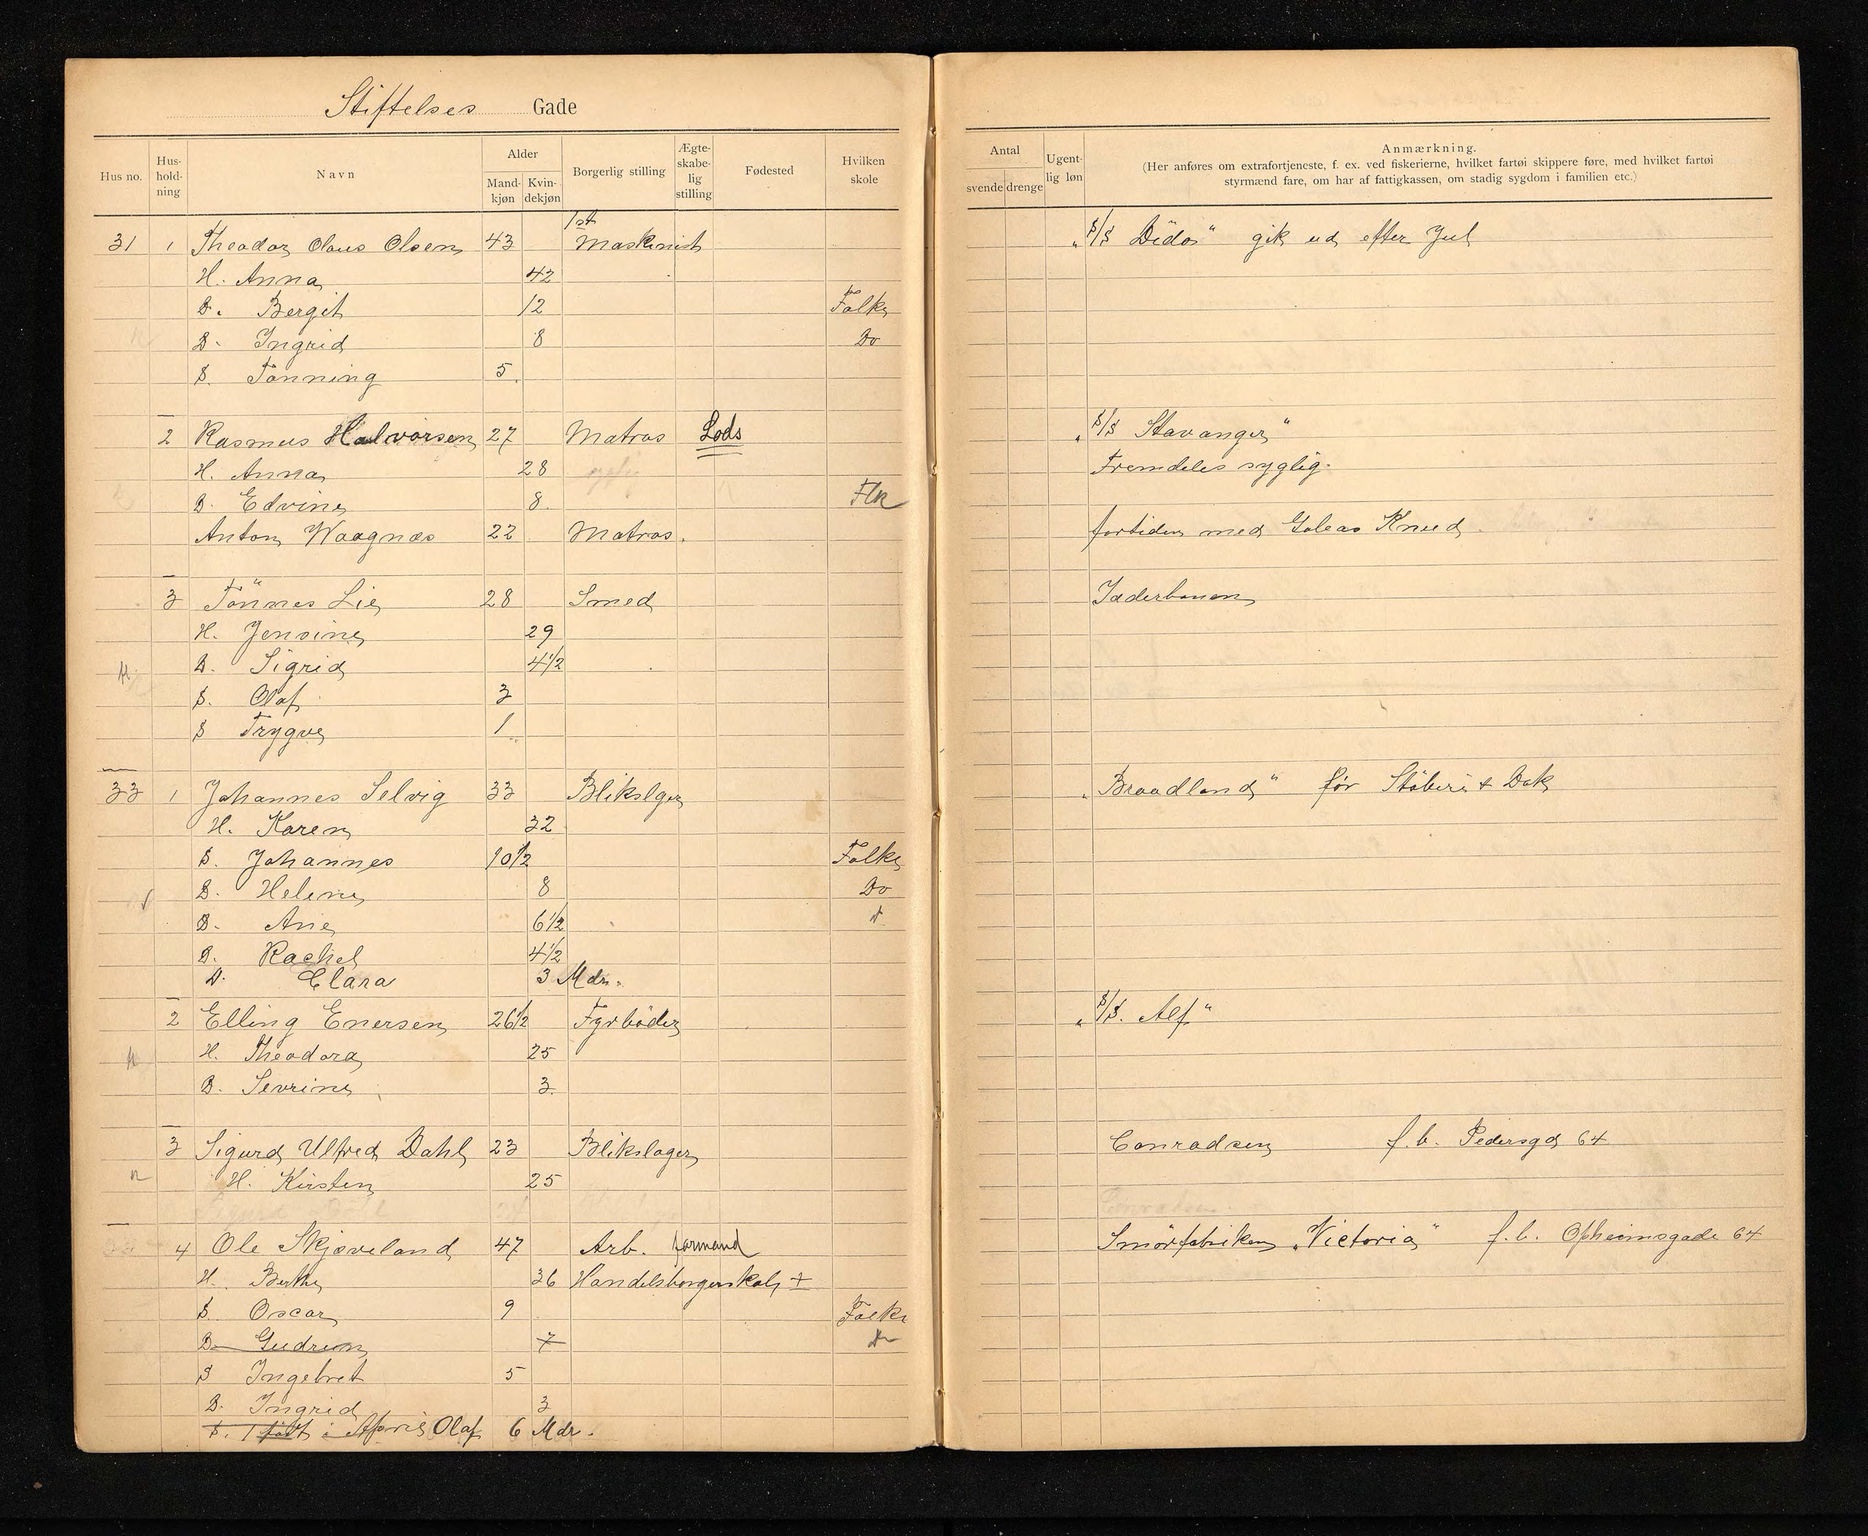 Stiftelses Gade
Hus no. Hus-hold-ning Navn Alder Mand-kjøn Kvin-dekjøn Borgerlig stilling Ægte-skabe-lig stilling Fødested Hvilken skole
Antal svende drenge Ugent-lig løn Anmærkning.
(Her anføres om extrafortjeneste, f. ex. ved fiskerierne, hvilket fartøi skippere føre, med hvilket fartøi
styrmænd fare, om har af fattigkassen, om stadig sygdom i familien etc.)
31 1 Theodor Olaus Olsen 43 1st Maskinist „S/S Dido“ gik ud efter Jul
H. Anna 42
D. Bergit 12 Folke
D. Ingrid 8 Do
S. Tønning 5
2 Rasmus Halvorsen 27 Matros Lods „S/S Stavanger“
H. Anna 28 Fremdeles syglig.
D. Edvine 8. Flk
Anton Waagnæs 22 Matros. fortiden med Galeas Knud
3 Tönnes Lie 28 Smed Jæderbanen
H. Jensine 29
D. Sigrid 4 1/2
S. Olaf 3
S Trygve 1
33 1 Johannes Selvig 33 Blikslger „Braadland“ før Støberi & Dok
H. Karen 32
S. Johannes 10 1/2 Folke
D. Helene 8 Do
D. Ane 6 1/2
D. Rachel 4 1/2
D. Clara 3 Mdr.
2 Elling Enersen 26 1/2 Fyrbøder „S/S. Alf“
H. Theodora 25
D. Sevrine 3.
3 Sigurd Ulfred Dahl 23 Blikslager Conradsen f.b. Pedersgd 64
H. Kirsten 25
4 Ole Skjæveland 47 Arb. formand Smörfabriken „Victoria“ f.b. Opheimsgade 64
H. Berthe 36 Handelsborgerskab +
S. Oscar 9 Folke
D. Gudrun 7
S Ingebret 5
D. Ingrid 3
S. 1 født i April Olaf 6 Mdr.